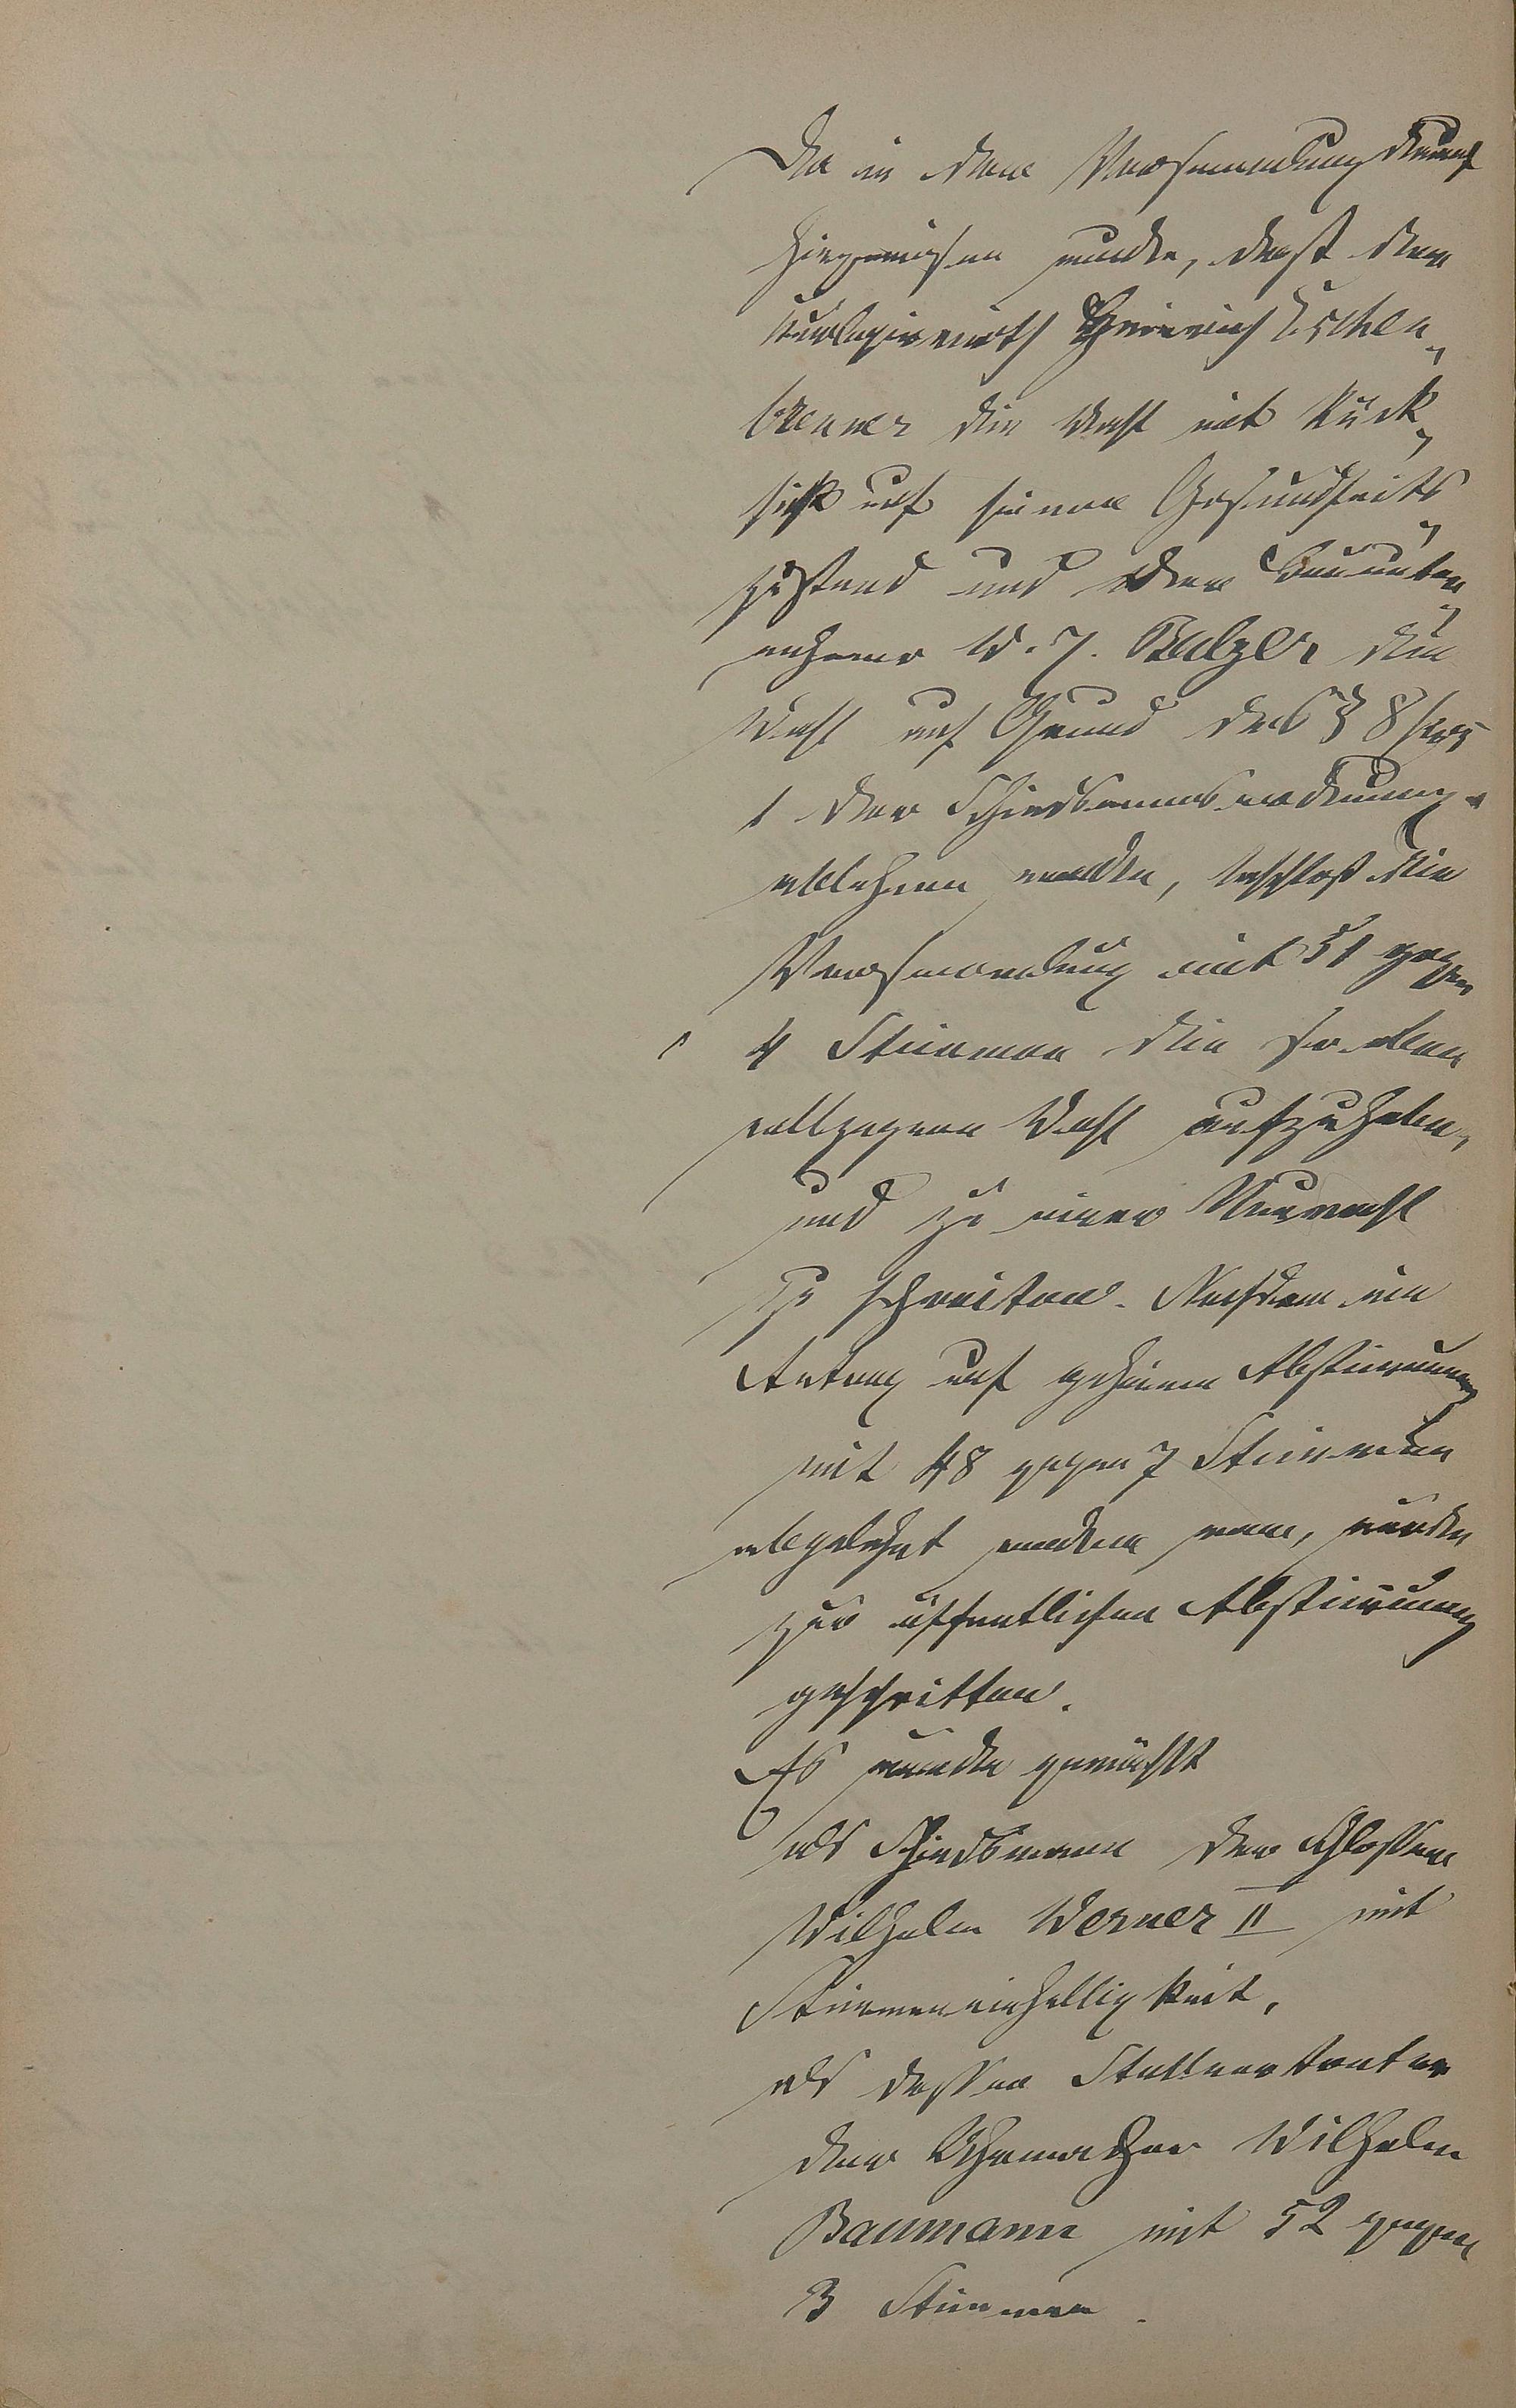 Da in der Versammlung darauf
hingewiesen wurde, daß der
Kurlogierwirth Heinrich Eschen„
brenner die Wahl mit Rück„
sicht auf seinen Gesundheits„
zustand und der Bauunter„
nehmer W. J. Balzer die
Wahl auf Grund des § 8
1 der Schiedsmannsordnung
ablehnen werden, beschloß die
Versammlung mit 51 gegen
4 Stimmen die so eben
vollzogene Wahl aufzuheben,
und zu einer Neuwahl
zu schreiten. Nachdem ein
Antrag auf geheime Abstimmung
mit 48 gegen 7 Stimmen
abgelehnt worden war, wurde
zur öffentlichen Abstimmung
geschritten.
Es wurde gewählt
als Schiedsmann der Schlosser
Wilhelm Werner II mit
Stimmeneinhelligkeit,
als dessen Stellvertreter
der Uhrmacher Wilhelm
Baumann mit 52 gegen
3 Stimmen.